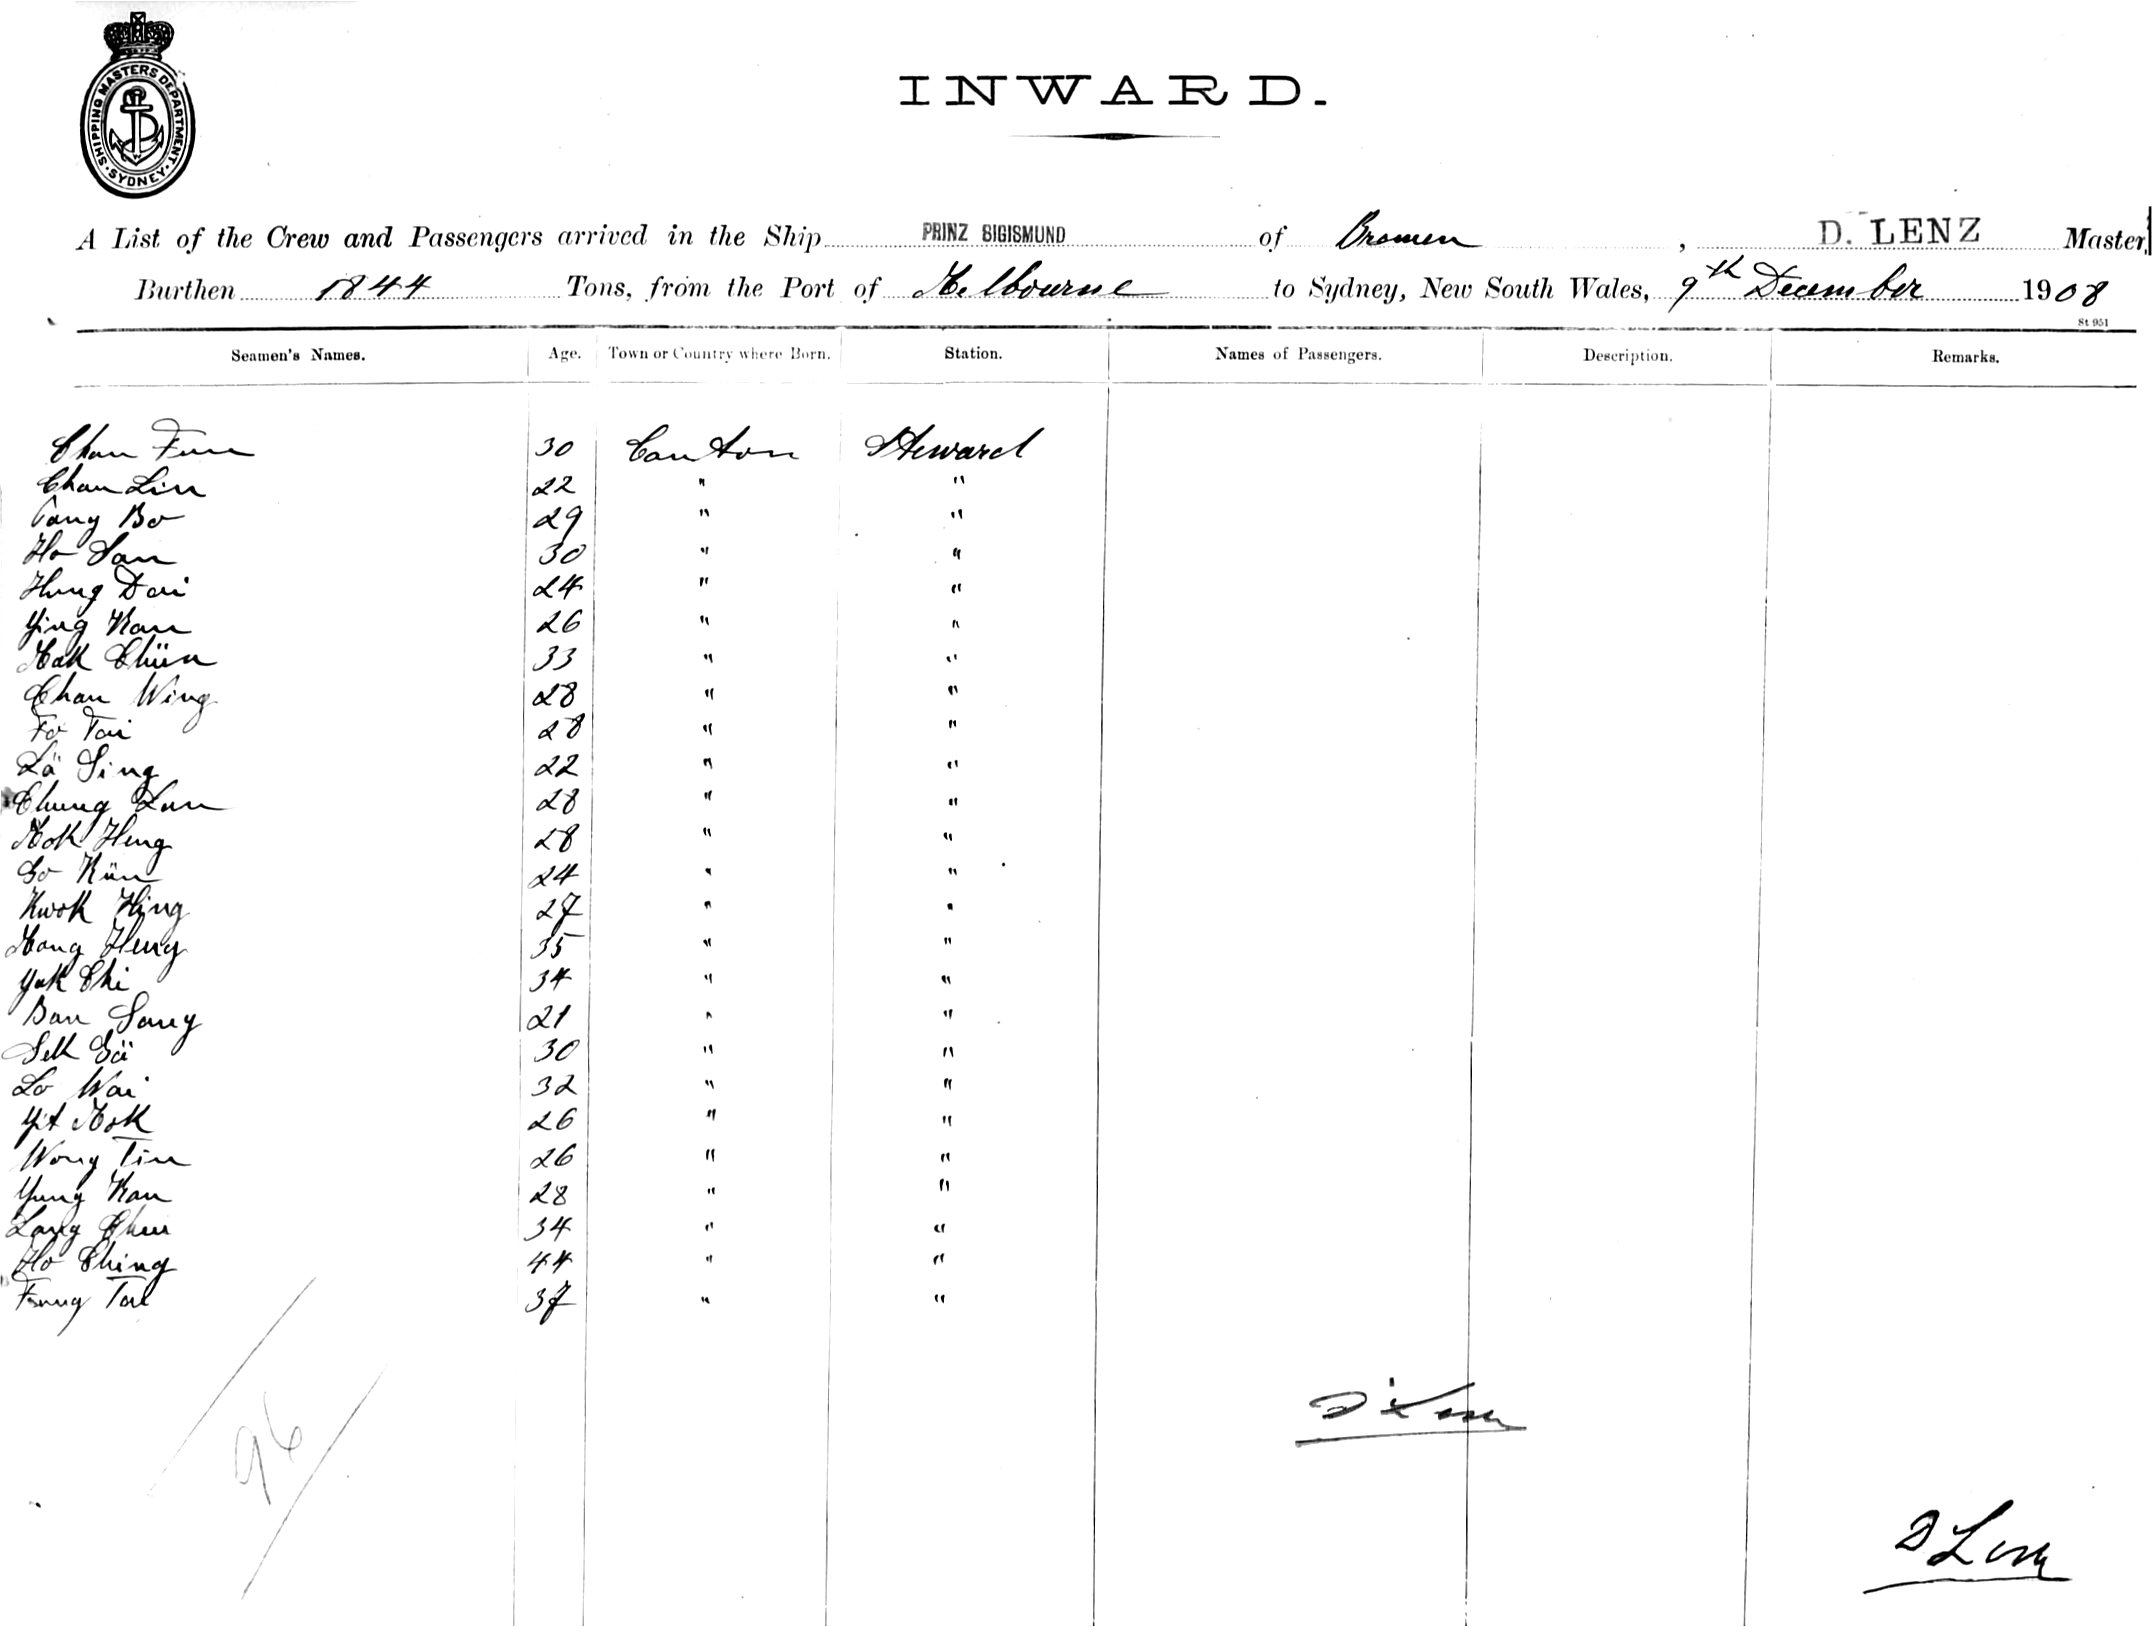 SHIPPING MASTERS DEPARTMENT · SYDNEY ·
INWARD.
A List of the Crew and Passengers arrived in the Ship PRINZ SIGISMUND of Bremen, D. LENZ Master,
Burthen 1844 Tons, from the Port of Melbourne to Sydney, New South Wales, 9th December 1908
St 951
Seamen's Names. Age. Town or Country where Born. Station. Names of Passengers. Description. Remarks.
Chan Fun 30 Canton Steward
Chan Lin 22 " "
Tang Bo 29 " "
Ho San 30 " "
Hung Dai 24 " "
Ying Kan 26 " "
Mak Chün 33 " "
Chan Wing 28 " "
Fo Tai 28 " "
Lä Sing 22 " "
Chung Lun 28 " "
Mok Heng 28 " "
So Kün 24 " "
Kwok Hing 27 " "
Mong Heng 35 " "
Yak Chi 34 " "
Ban Sang 21 " "
Sek Sü 30 " "
Lo Wai 32 " "
Yit Mok 26 " "
Wong Tin 26 " "
Yung Kan 28 " "
Lang Chun 34 " "
Ho Ching 44 " "
Fung Tai 37 " "
D Lenz
96
D Lenz